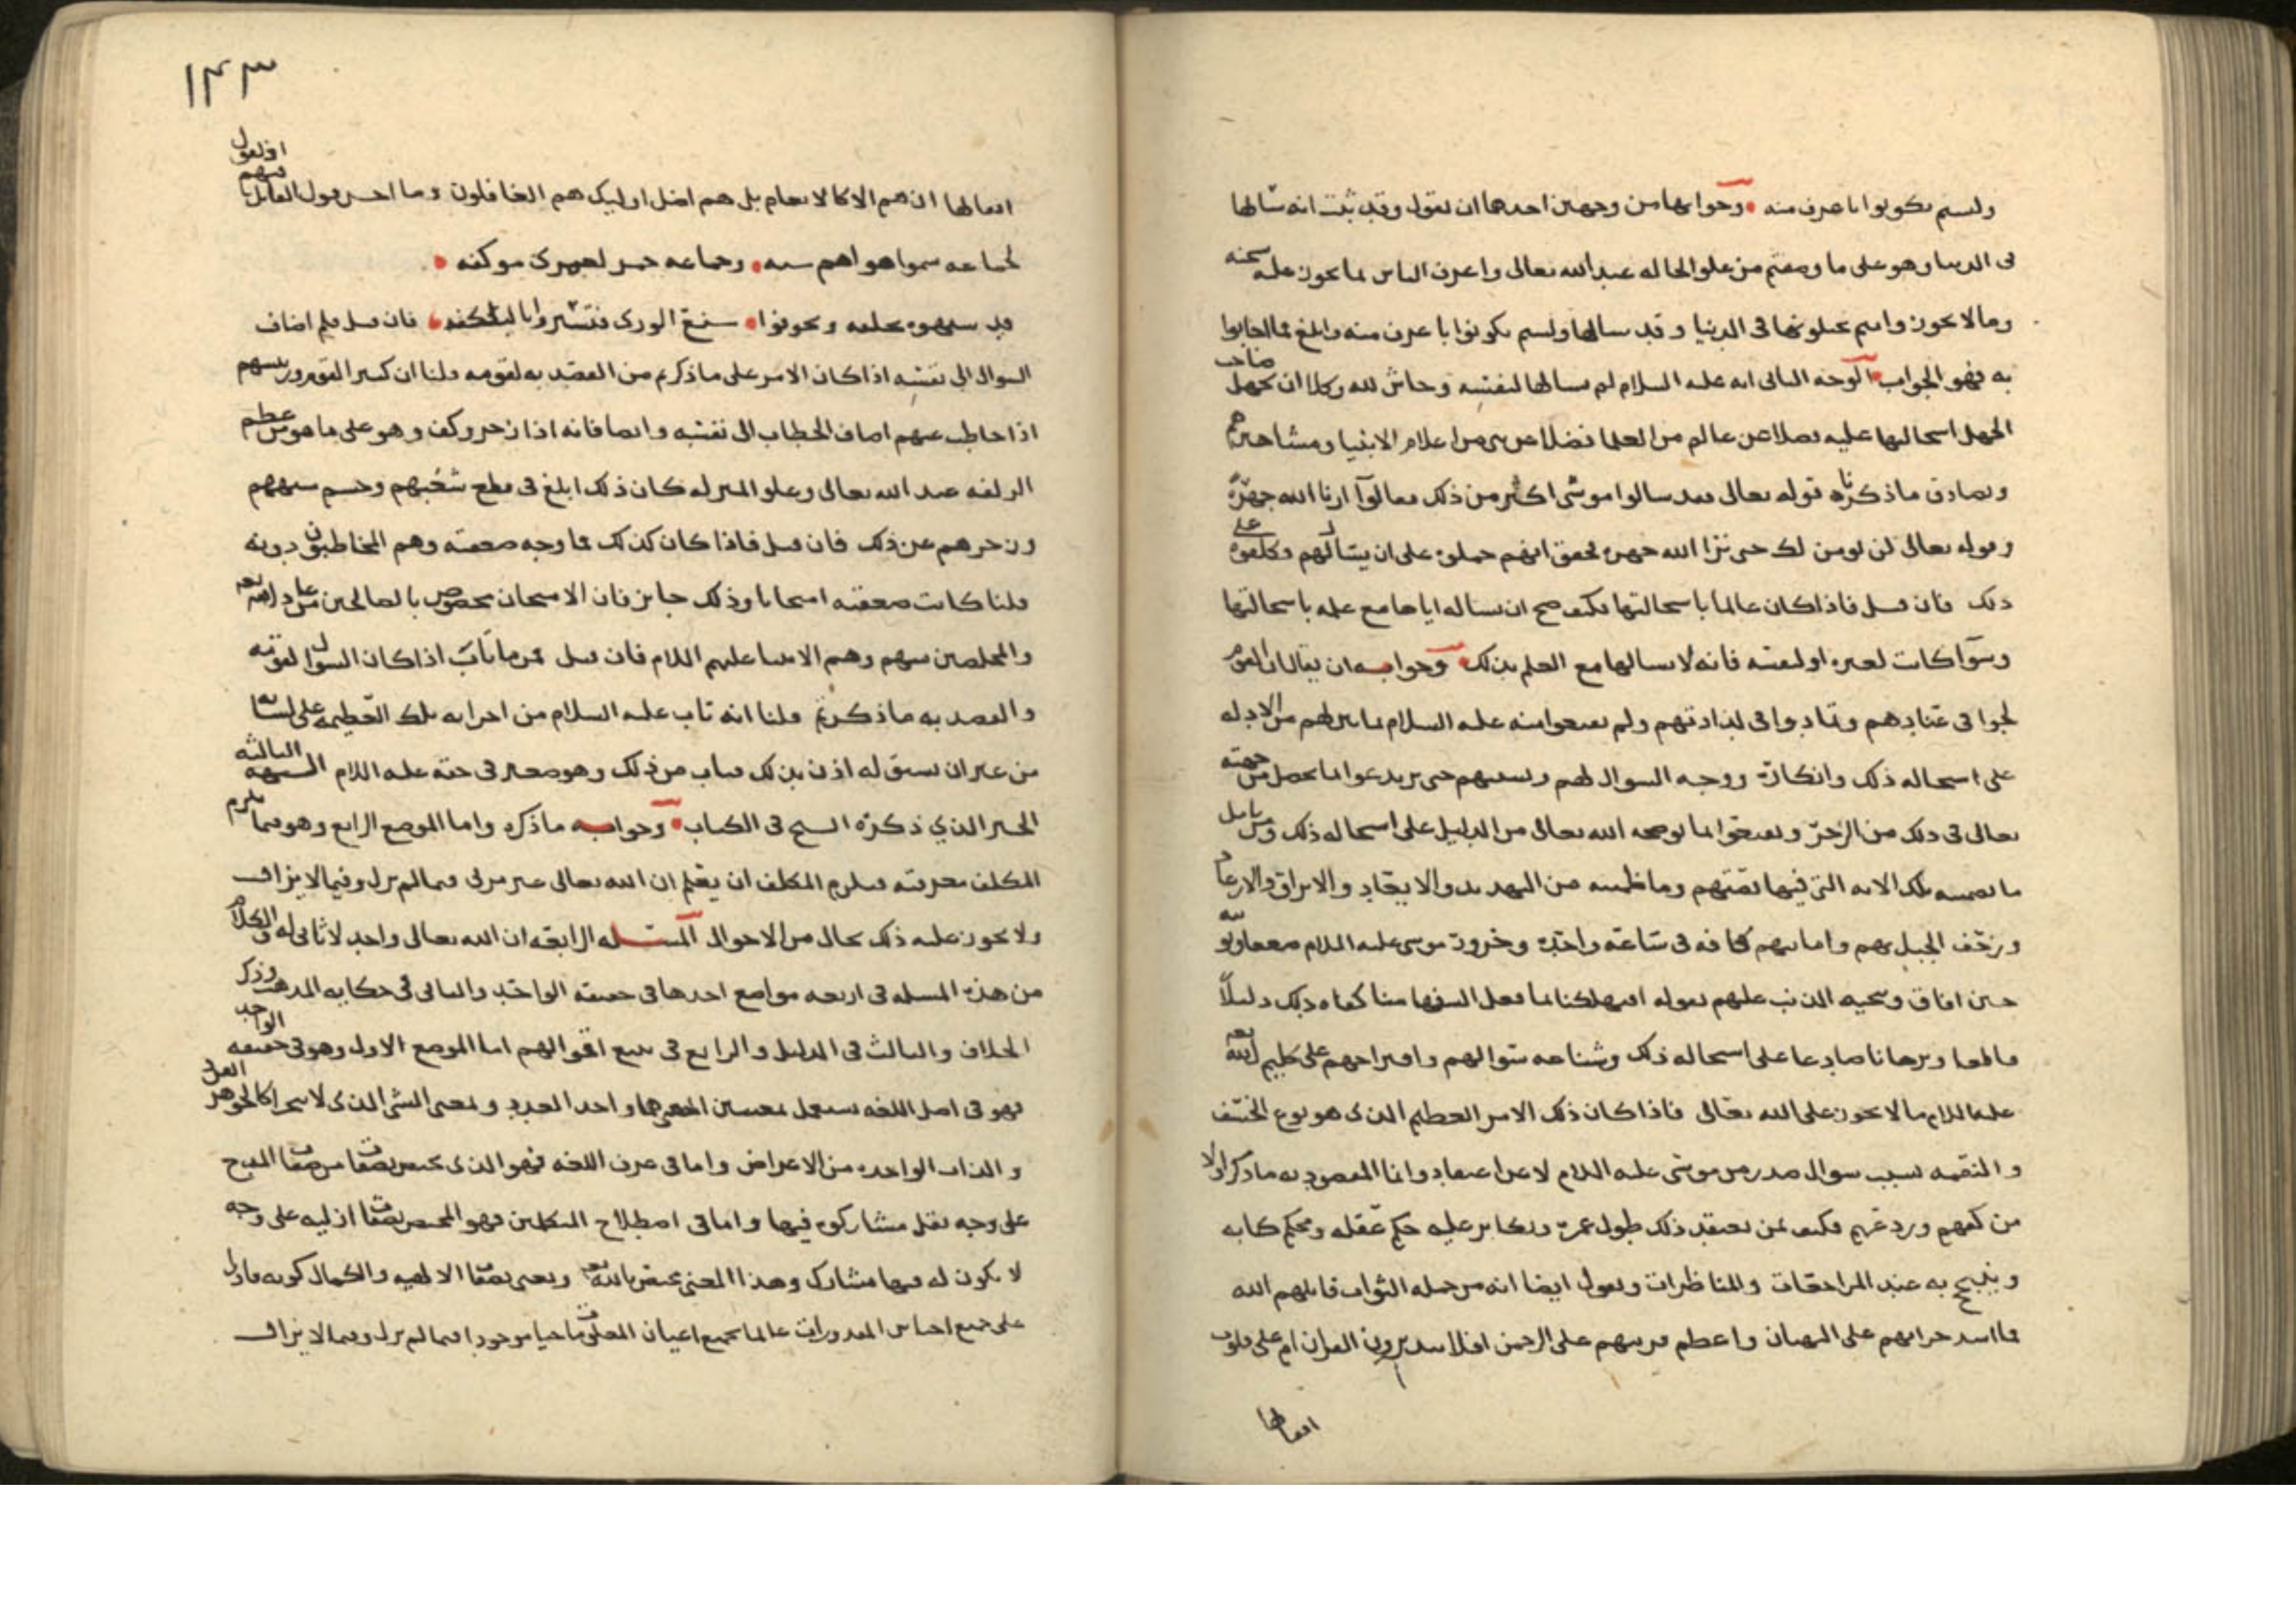 ولستم بكونوا باعرف منه وجوابها من وجهين احدهما ان نقول وقد ثبت انه سالها
فى الدنيا وهو على ما وصفتم من علو الحاله عند الله تعالى واعرف الناس بما يجوز عليه سبحنه
وما لا يجوز وانتم تحيلونها فى الدنيا وقد سالها ولستم بكونوا باعرف منه وابلغ فما اجابوا
به فهو الجواب الوجه الثانى انه عليه السلام لم يسالها لنفسه وحاش لله وكلا ان يجهل صاحب
الجهل استحالتها عليه فضلا عن عالم من العلما فضلا عن نبى من اعلام الانبيا ومشاهيرهم
وبصادق ما ذكرناه قوله تعالى فقد سالوا موسى اكثر من ذلك فقالوا ارنا الله جهرة
وقوله تعالى لن نومن لك حتى نرا الله جهره فحقق انهم حملوه على ان يسال لهم وكلفوه على
ذلك فان قيل فاذا كان عالما باستحالتها فكيف صح ان يساله اياها مع علمه باستحالتها
وسوآ كانت لغيره او لنفسه فانه لا يسالها مع العلم بذلك وجوابه ان يقال ان القوم
لجوا فى عنادهم وتمادوا فى لدادتهم ولم يقنعوا منه عليه السلام بما بين لهم من الادله
على استحاله ذلك وانكاره ووجه السوال لهم وبسببهم حتى يرتدعوا بما يحصل من جهته
تعالى فى ذلك من الزجر ويقنعوا بما يوضحه الله تعالى من الدليل على استحاله ذلك ومن تامل
ما تضمنته تلك الايه التى فيها قصتهم وما نظمته من التهديد والايعاد والابراق والارعاد
ورجف الجبل بهم واماتتهم كافه فى ساعة واحدة وخرور موسى عليه السلام صعقا وتوبته
حين افاق وتنحيه الذنب عليهم بقوله اتهلكنا بما فعل السفها منا كفاه ذلك دليلاً
قاطعا وبرهانا صادعا على استحاله ذلك وشناعه سوالهم واقتراحهم على كليم الله تعالى
عليه السلام ما لا يجوز على الله تعالى فاذا كان ذلك الامر العظيم الذى هو نوع الخسف
والنقمه بسبب سوال صدر من موسى عليه السلام لا عن اعتقاد وانما المقصود به ما ذكر اولا
من كفهم وردعهم فكيف بمن يعتقد ذلك طول عمره ويكابر عليه حكم عقله ومحكم كتابه
ويتبجح به عند المراجعات والمناظرات ويقول ايضا انه من جمله الثواب قاتلهم الله
فما اشد جراتهم على البهتان واعظم فريتهم على الرحمن افلا يتدبرون القران ام على قلوب
اقفالها
١٤٣
اقفالها ان هم الا كالانعام بل هم اضل اوليك هم الغافلون وما احسن قول القايل فيهم اذ يقول
لجماعه سموا هواهم سنه وجماعه حمر لعمرى موكفه
قد شبهوه بخلقه وتخوفوا شنع الورى فتستروا بالبلكفه فان قيل فلم اضاف
السوال الى نفسه اذا كان الامر على ما ذكرتم من القصد به لقومه قلنا ان كبير القوم وريسهم
اذا خاطب عنهم اضاف الخطاب الى نفسه وايضا فانه اذا زجر وكف وهو على ما هو من عظيم
الزلفه عند الله تعالى وعلو المنزله كان ذلك ابلغ فى قطع شغبهم وحسم سبههم
وزجرهم عن ذلك فان قيل فاذا كان كذلك فما وجه صعقته وهم المخاطبون دونه
قلنا كانت صعقته امتحانا وذلك جايز فان الامتحان مخصوص بالصالحين من عباد الله تعالى
والمخلصين منهم وهم الانبيا عليهم السلام فان قيل فمن ما تاب اذا كان السوال لقومه
والقصد به ما ذكرتم قلنا انه تاب عليه السلام من اجرايه تلك العظيمه على لسانه
من غير ان يسبق له اذن بذلك فتاب من ذلك وهو صغير فى حقه عليه السلام الشبهه الثالثه
الخبر الذي ذكره الشيخ فى الكتاب وجوابه ما ذكره واما الموضع الرابع وهو فيما يلزم
المكلف معرفته فيلزم المكلف ان يعلم ان الله تعالى غير مرئى فيما لم يزل وفيما لا يزال
ولا يجوز عليه ذلك بحال من الاحوال المسئله الرابعه ان الله تعالى واحد لا ثانى له والكلام
من هذه المسله فى اربعه مواضع احدها فى حقيقه الواحد والثانى فى حكايه المذهب وذكر
الخلاف والثالث فى الدليل والرابع فى تتبع اقوالهم اما الموضع الاول وهو فى حقيقه الواحد
فهو فى اصل اللغه يستعمل بمعنيين احدهما واحد العدد وبمعنى الشى الذى لا يتجزا كالجوهر الفرد
والذات الواحده من الاعراض واما فى عرف اللغه فهو الذى يختص بصفات من صفات المدح
على وجه يقل مشاركوه فيها واما فى اصطلاح المتكلمين فهو المختص بصفات ازليه على وجه
لا يكون له فيها مشارك وهذا المعنى يختص بالله تعالى ونعنى بصفات الالهيه والكمال كونه قادرا
على جميع اجناس المقدورات عالما بجميع اعيان المعلومات حيا موجودا فيما لم يزل وفيما لا يزال